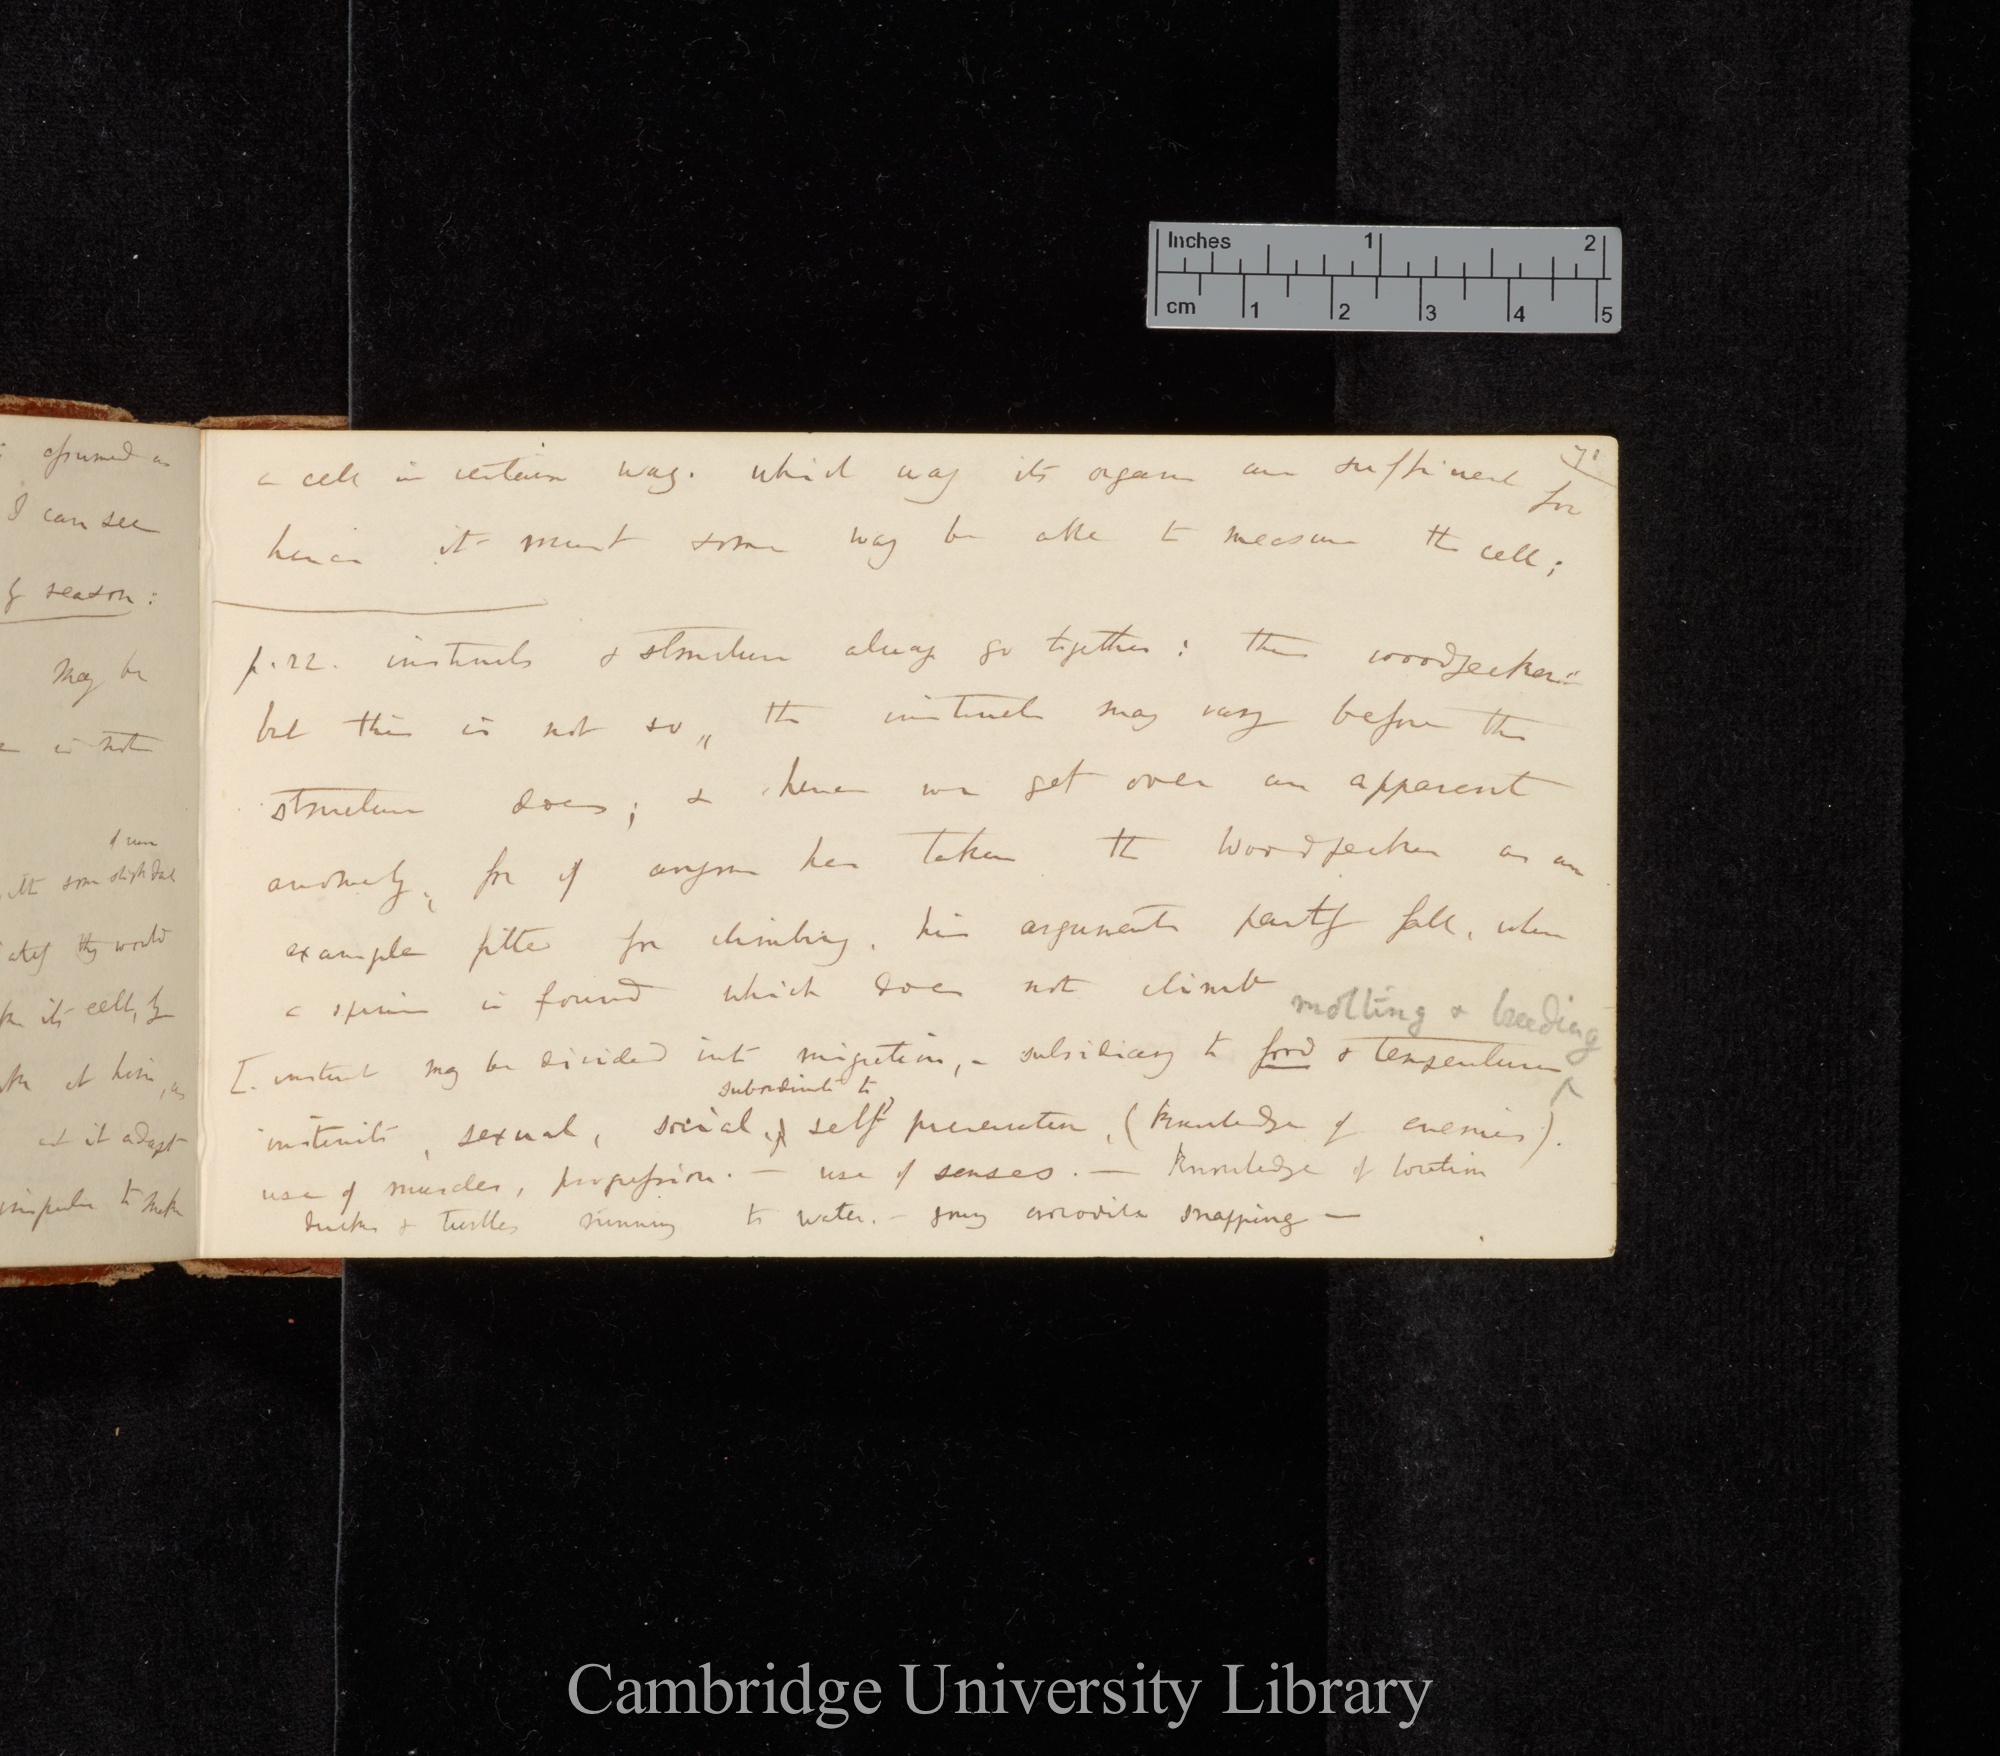 assumed as
I can see
season:
may be
is not
some slight dul
they would
its cells, by
at him, as
at it adapt
to make
71
a cell in certain way. which way its organs are sufficient for
hence it must some way be able to measure the cell;
p. 22. instincts & structure always go together: thus woodpecker:
but this is not so,, the instincts may vary before the
structure does; & hence we get over an apparent
anomaly, for if anyone has taken the Woodpecker as an
example fitted for climbing, his arguments partly fall, when
a species is found which does not climb
molting & breeding
[. instinct may be divided into migration, – subsidiary to food & temperature
subordinate to
instincts, sexual, social, self preservation, (knowledge of enemies).
use of muscles, progression. — use of senses. — knowledge of location
ducks & turtles running to water. — young crocodile snapping —
Inches 1 2
cm 1 2 3 4 5
Cambridge University Library